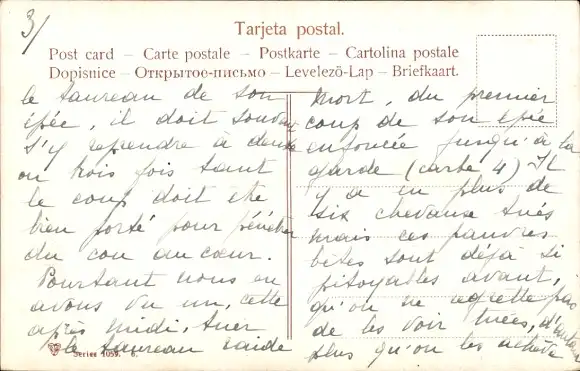 3/
Tarjeta postal.
Post card – Carte postale – Postkarte – Cartolina postale
Dopisnice – Открытое-письмо – Levelező-Lap – Briefkaart.
le taureau de son
épée, il doit souvent
s'y reprendre à deux
ou trois fois tant
le coup doit être
bien porté pour pénétrer
du cou au cœur.
Pourtant nous en
avons vu un, cette
après midi, tuer
le taureau raide
Series 1059. 6.
mort, du premier
coup de son épée
enfoncée jusqu'à la
garde (carte 4) Il
y a en plus de
six chevaux tués
mais ces pauvres
bêtes sont déjà si
pitoyables avant,
qu'on ne regrette pas
de les voir tuées, d'autant
plus qu'on les achève